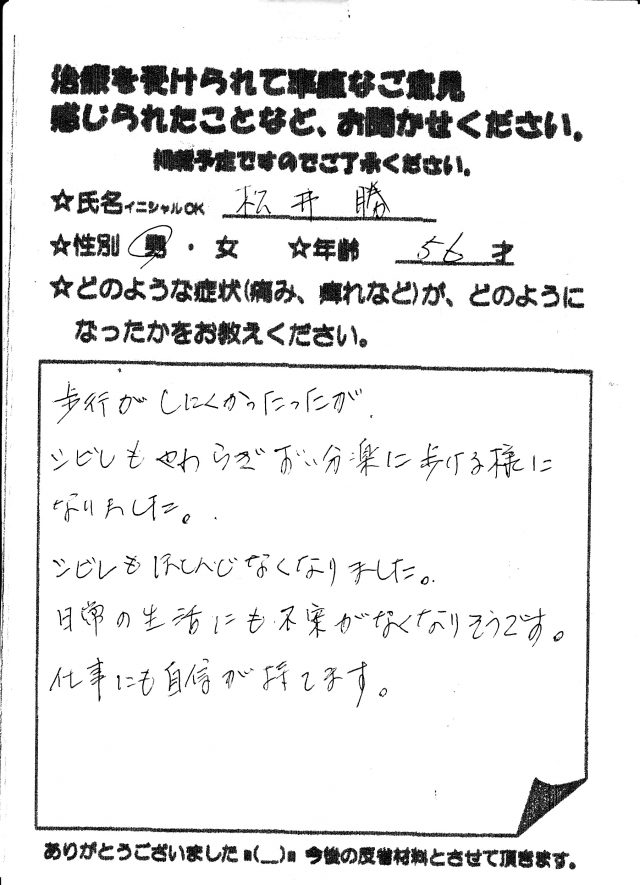 治療を受けられて率直なご意見
感じられたことなど、お聞かせください。
掲載予定ですのでご了承ください。
☆氏名イニシャルOK 松井 勝
☆性別 男・女 ☆年齢 56才
☆どのような症状(痛み、痺れなど)が、どのように
なったかをお教えください。
歩行がしにくかったったが、
シビレもやわらぎずい分楽に歩ける様に
なりました。
シビレもほとんどなくなりました。
日常の生活にも不安がなくなりそうです。
仕事にも自信が持てます。
ありがとうございましたm(__)m 今後の反省材料とさせて頂きます。